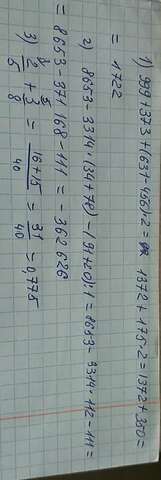 1) 999+373+(631-456)·2 = 1372+175·2=1372+350=
= 1722
2) 8653-3314·(34+78)-(91+20)·1=8653-3314·112-111=
= 8653-371168-111 = -362626
3) 2/5 + 3/8 = (16+15)/40 = 31/40 = 0,775